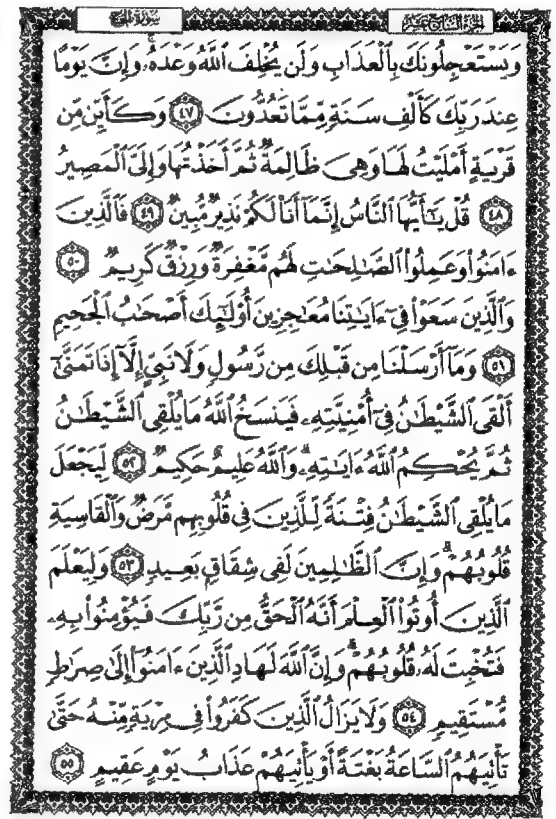 الجزء السابع عشر
سورة الحج
وَيَسْتَعْجِلُونَكَ بِٱلْعَذَابِ وَلَن يُخْلِفَ ٱللَّهُ وَعْدَهُۥ وَإِنَّ يَوْمًا
عِندَ رَبِّكَ كَأَلْفِ سَنَةٍ مِّمَّا تَعُدُّونَ ٤٧ وَكَأَيِّن مِّن
قَرْيَةٍ أَمْلَيْتُ لَهَا وَهِىَ ظَالِمَةٌ ثُمَّ أَخَذْتُهَا وَإِلَىَّ ٱلْمَصِيرُ
٤٨ قُلْ يَٰٓأَيُّهَا ٱلنَّاسُ إِنَّمَآ أَنَا۠ لَكُمْ نَذِيرٌ مُّبِينٌ ٤٩ فَٱلَّذِينَ
ءَامَنُوا۟ وَعَمِلُوا۟ ٱلصَّٰلِحَٰتِ لَهُم مَّغْفِرَةٌ وَرِزْقٌ كَرِيمٌ ٥٠
وَٱلَّذِينَ سَعَوْا۟ فِىٓ ءَايَٰتِنَا مُعَٰجِزِينَ أُو۟لَٰٓئِكَ أَصْحَٰبُ ٱلْجَحِيمِ
٥١ وَمَآ أَرْسَلْنَا مِن قَبْلِكَ مِن رَّسُولٍ وَلَا نَبِىٍّ إِلَّآ إِذَا تَمَنَّىٰٓ
أَلْقَى ٱلشَّيْطَٰنُ فِىٓ أُمْنِيَّتِهِۦ فَيَنسَخُ ٱللَّهُ مَا يُلْقِى ٱلشَّيْطَٰنُ
ثُمَّ يُحْكِمُ ٱللَّهُ ءَايَٰتِهِۦ ۗ وَٱللَّهُ عَلِيمٌ حَكِيمٌ ٥٢ لِّيَجْعَلَ
مَا يُلْقِى ٱلشَّيْطَٰنُ فِتْنَةً لِّلَّذِينَ فِى قُلُوبِهِم مَّرَضٌ وَٱلْقَاسِيَةِ
قُلُوبُهُمْ ۗ وَإِنَّ ٱلظَّٰلِمِينَ لَفِى شِقَاقٍۭ بَعِيدٍ ٥٣ وَلِيَعْلَمَ
ٱلَّذِينَ أُوتُوا۟ ٱلْعِلْمَ أَنَّهُ ٱلْحَقُّ مِن رَّبِّكَ فَيُؤْمِنُوا۟ بِهِۦ
فَتُخْبِتَ لَهُۥ قُلُوبُهُمْ ۗ وَإِنَّ ٱللَّهَ لَهَادِ ٱلَّذِينَ ءَامَنُوٓا۟ إِلَىٰ صِرَٰطٍ
مُّسْتَقِيمٍ ٥٤ وَلَا يَزَالُ ٱلَّذِينَ كَفَرُوا۟ فِى مِرْيَةٍ مِّنْهُ حَتَّىٰ
تَأْتِيَهُمُ ٱلسَّاعَةُ بَغْتَةً أَوْ يَأْتِيَهُمْ عَذَابُ يَوْمٍ عَقِيمٍ ٥٥